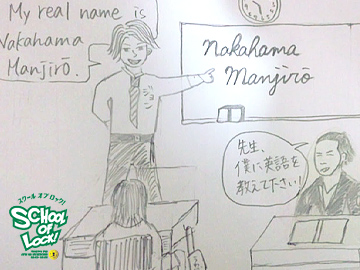 My real name is
Nakahama
Manjirō.
Nakahama
Manjirō
ジョン
先生、
僕に英語を
教えて下さい!
スクール オブ ロック!
SCHOOL
OF
LOCK!